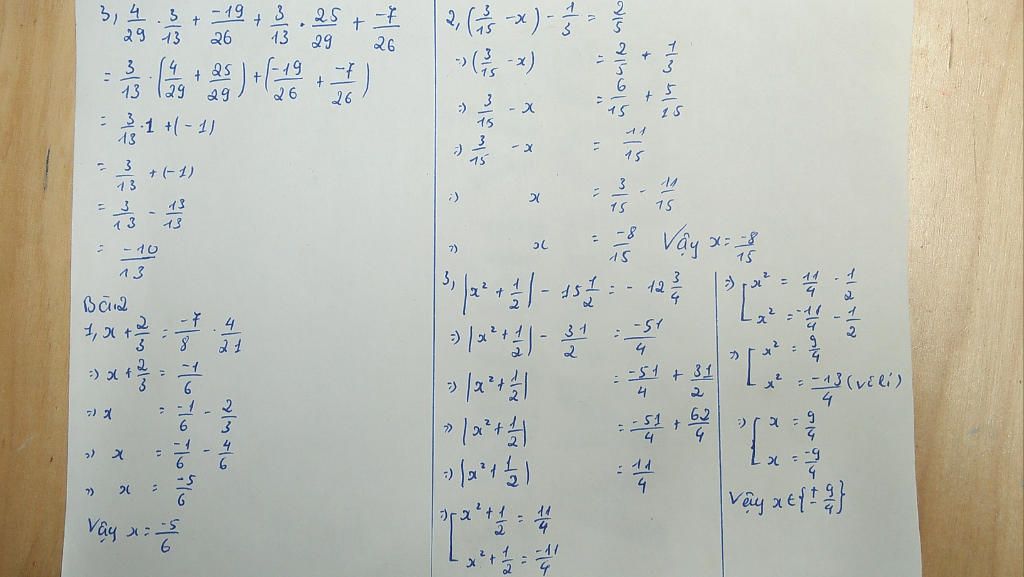 3, 4/29 · 3/13 + -19/26 + 3/13 · 25/29 + -7/26
= 3/13 · (4/29 + 25/29) + (-19/26 + -7/26)
= 3/13 · 1 + (-1)
= 3/13 + (-1)
= 3/13 - 13/13
= -10/13
Bài 2
1, x + 2/3 = -7/8 · 4/21
=> x + 2/3 = -1/6
=> x = -1/6 - 2/3
=> x = -1/6 - 4/6
=> x = -5/6
Vậy x = -5/6
2, (3/15 - x) - 1/3 = 2/5
=> (3/15 - x) = 2/5 + 1/3
=> 3/15 - x = 6/15 + 5/15
=> 3/15 - x = 11/15
=> x = 3/15 - 11/15
=> x = -8/15 Vậy x = -8/15
3, |x² + 1/2| - 15 1/2 = - 12 3/4
=> |x² + 1/2| - 31/2 = -51/4
=> |x² + 1/2| = -51/4 + 31/2
=> |x² + 1/2| = -51/4 + 62/4
=> |x² + 1/2| = 11/4
=> [x² + 1/2 = 11/4
x² + 1/2 = -11/4
=> [x² = 11/4 - 1/2
x² = -11/4 - 1/2
=> [x² = 9/4
x² = -13/4 (vô lí)
=> [x = 9/4
x = -9/4
Vậy x ∈ {± 9/4}